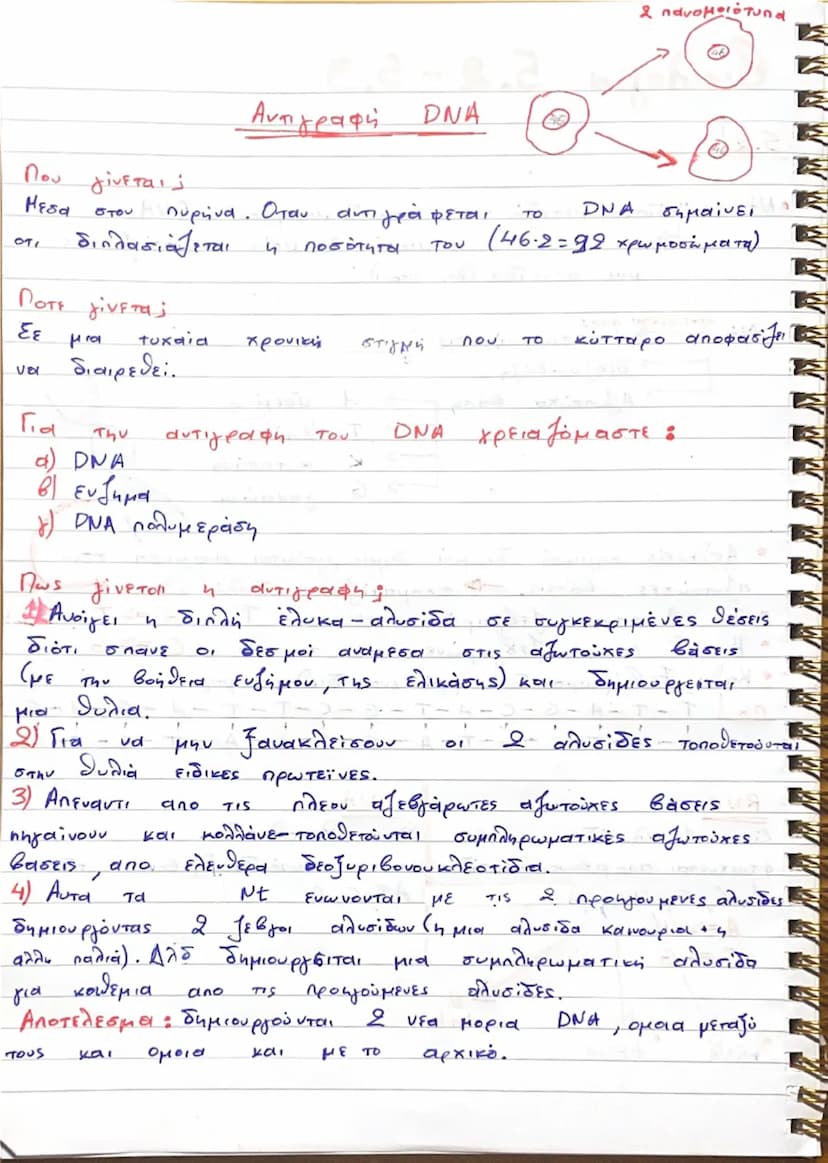 2 πανομοιότυπα
46
46
46
Αντιγραφή DNA
Που γίνεται;
Μεσα στον πυρήνα. Οταν αντιγράφεται το DNA σημαίνει
οτι διπλασιάζεται η ποσότητα του (46·2=92 χρωμοσώματα)
Ποτε γίνεται;
Σε μια τυχαία χρονική στιγμή που το κύτταρο αποφασίζει
να διαιρεθεί.
Για την αντιγραφη του DNA χρειαζόμαστε:
α) DNA
β) ενζημα
γ) DNA πολυμεράση
Πως γίνεται η αντιγραφη;
1) Ανοίγει η διπλή έλυκα-αλυσίδα σε συγκεκριμένες θέσεις
διότι σπανε οι δεσμοί αναμεσα στις αζωτούχες βάσεις
(με την βοήθεια ενζήμου, της ελικάσης) και δημιουργειται
μια θυλια.
2) Για να μην ξανακλείσουν οι 2 αλυσίδες τοποθετούνται
στην θυλιά ειδικες πρωτεϊνες.
3) Απεναντι απο τις πλεον αζευγάρωτες αζωτούχες βάσεις
πηγαίνουν και κολλάνε-τοποθετούνται συμπληρωματικές αζωτούχες
βασεις, απο ελευθερα δεοξυριβονουκλεοτίδια.
4) Αυτα τα Nt ενωνονται με τις 2 προηγουμενες αλυσιδες
δημιουργόντας 2 ζεβγοι αλυσίδων (η μια αλυσιδα καινουρια + η
αλλη παλιά). Δλδ δημιουργειται μια συμπληρωματική αλυσίδα
για καθεμια απο τις προηγούμενες αλυσιδες.
Αποτελεσμα: δημιουργούνται 2 νεα μορια DNA, ομοια μεταξύ
τους και ομοια και με το αρχικό.